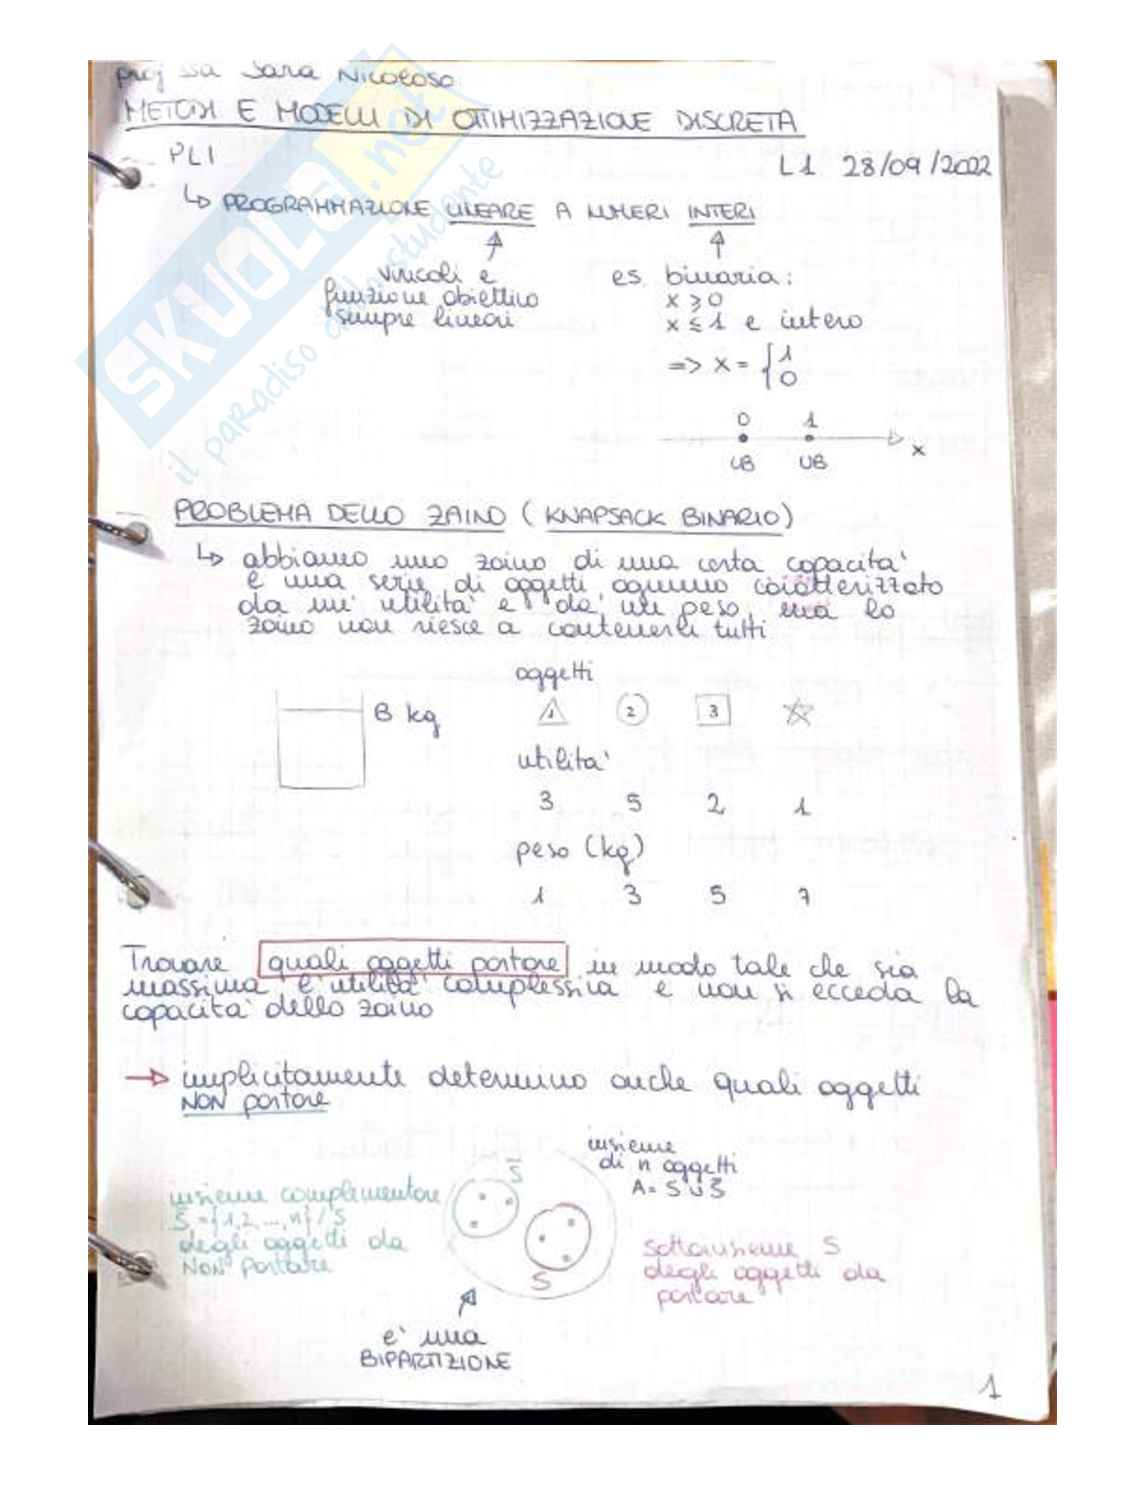 prof.ssa Sara Nicoloso
METODI E MODELLI DI OTTIMIZZAZIONE DISCRETA
PLI
L1 28/09/2022
↳ PROGRAMMAZIONE LINEARE A NUMERI INTERI
vincoli e
funzione obiettivo
sempre lineari
es. binaria:
x ≥ 0
x ≤ 1 e intero
=> x = { 1
0
0 1
LB UB x
PROBLEMA DELLO ZAINO (KNAPSACK BINARIO)
↳ abbiamo uno zaino di una certa capacita'
e una serie di oggetti, ognuno caratterizzato
da un' utilita' e da un peso, ma lo
zaino non riesce a contenerli tutti
oggetti
B kg 1 2 3
utilita'
3 5 2 1
peso (kg)
1 3 5 7
Trovare quali oggetti portare in modo tale che sia
massima l'utilita' complessiva e non si ecceda la
capacita' dello zaino
→ implicitamente determino anche quali oggetti
NON portare
insieme
di n oggetti
A = S ∪ S̄
S̄
insieme complementare
S̄ = {1,2,...,n} / S
degli oggetti da
NON portare
S
sottoinsieme S
degli oggetti da
portare
e' una
BIPARTIZIONE
1
SKUOLA.net
il paradiso dello studente